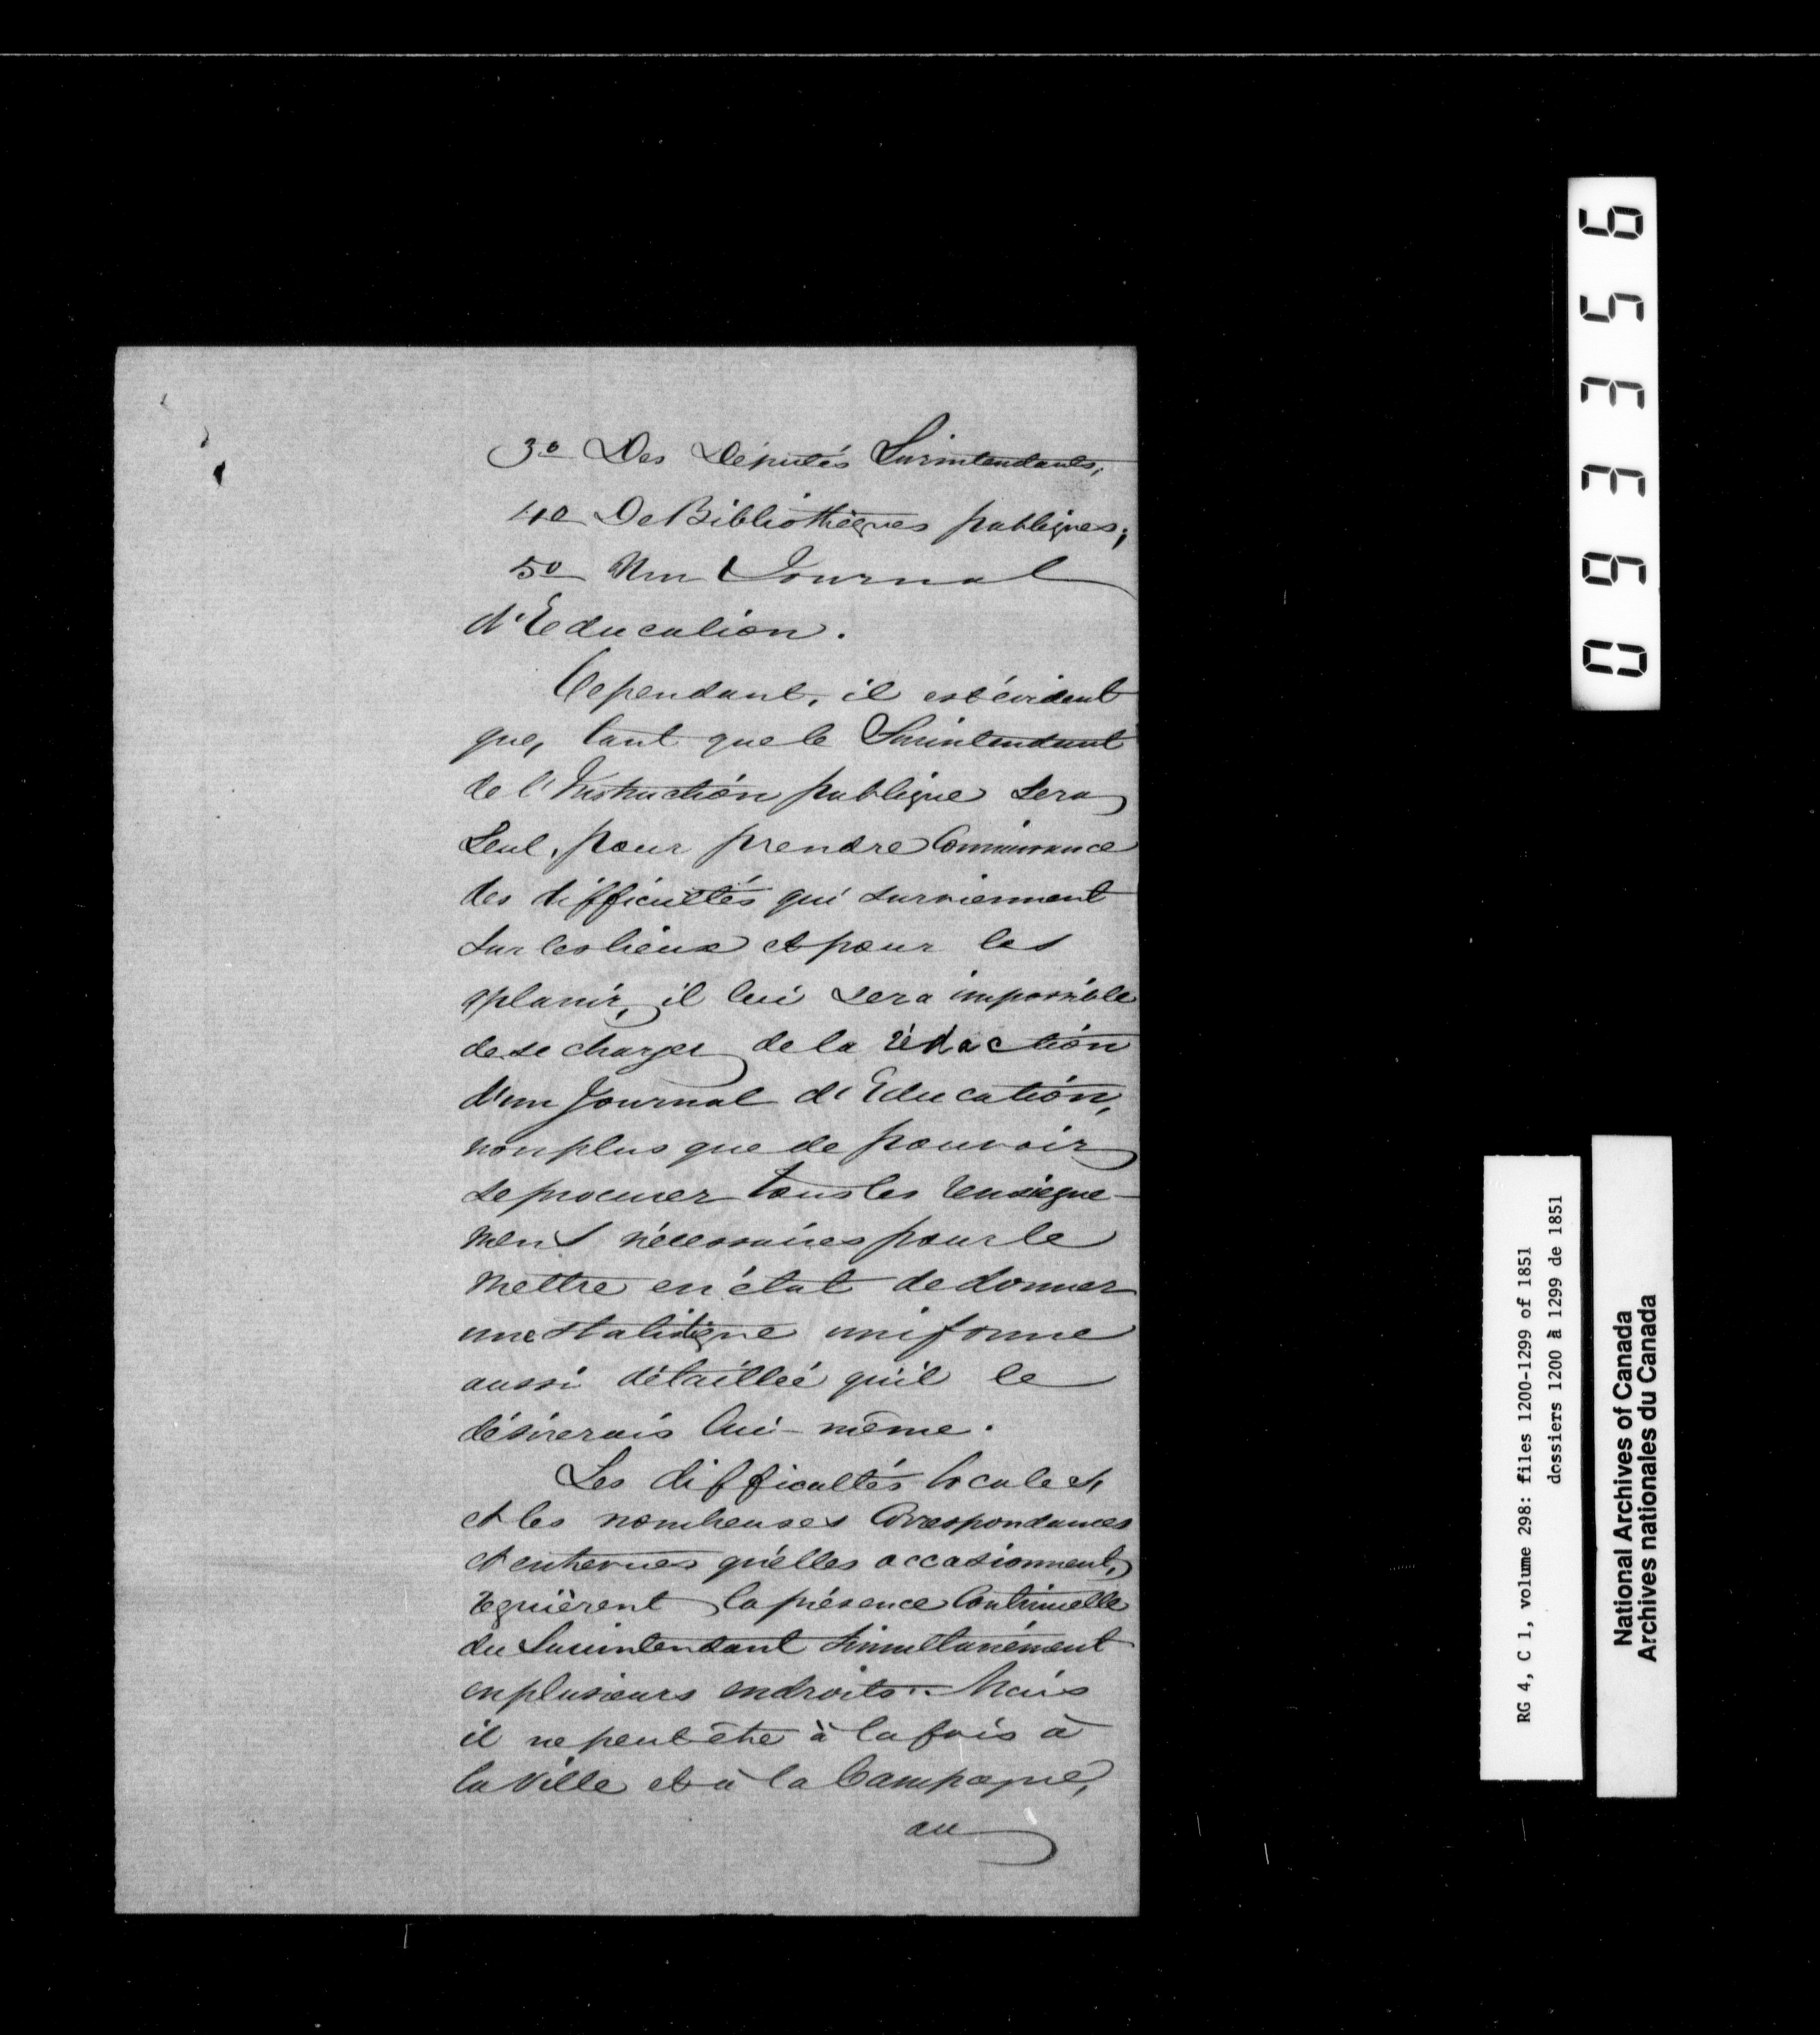 3o Des Députés Surintendants,
4o De Bibliothèques publiques;
5o Un Journal
d'Education.
Cependant, il est évident
que, tant que le Surintendant
de l'Instruction publique sera
seul, pour prendre connaissance
des difficultés qui surviennent
sur les lieux et pour les
applanir, il lui sera impossible
de se charger de la rédaction
d'un Journal d'Education,
non plus que de pouvoir
se procurer tous les renseigne-
ments nécessaires pour le
mettre en état de donner
une statistique uniforme
aussi détaillée qu'il le
désirerais lui-même.
Les difficultés locales,
et les nombreuses Correspondances
et entrevues qu'elles occasionnent,
requièrent la présence Continuelle
du Surintendant simultanément
en plusieurs endroits. Mais
il ne peut être à la fois à
la Ville et à la Campagne,
au
093356
RG 4, C 1, volume 298: files 1200-1299 of 1851
dossiers 1200 à 1299 de 1851
National Archives of Canada
Archives nationales du Canada